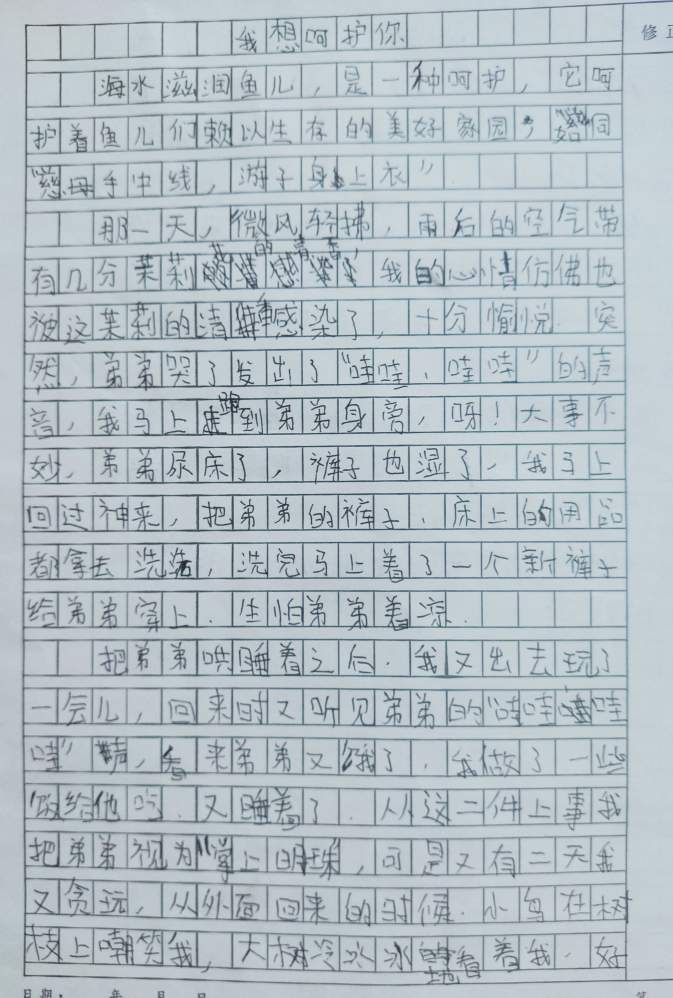 我想呵护你
修正
海水滋润鱼儿，是一种呵护，它呵
护着鱼儿们赖以生存的美好家园，如同
“慈母手中线，游子身上衣”
那一天，微风轻拂，雨后的空气带
有几分茉莉花的清香，我的心情仿佛也
被这茉莉的清香感染了，十分愉悦.突
然，弟弟哭了发出了“哇哇，哇哇”的声
音，我马上跑到弟弟身旁，呀！大事不
妙，弟弟尿床了，裤子也湿了，我马上
回过神来，把弟弟的裤子，床上的用品
都拿去洗洗，洗完马上着了一个新裤子
给弟弟穿上.生怕弟弟着凉.
把弟弟哄睡着之后.我又出去玩了
一会儿，回来时又听见弟弟的“哇哇哇哇
哇”声，看来弟弟又饿了，我做了一些
饭给他吃.又睡着了.从这二件上事我
把弟弟视为“掌上明珠”，可是又有二天我
又贪玩，从外面回来的时候.小鸟在树
枝上嘲笑我，大树冷冰冰地看着我.好
日期： 年 月 日
第